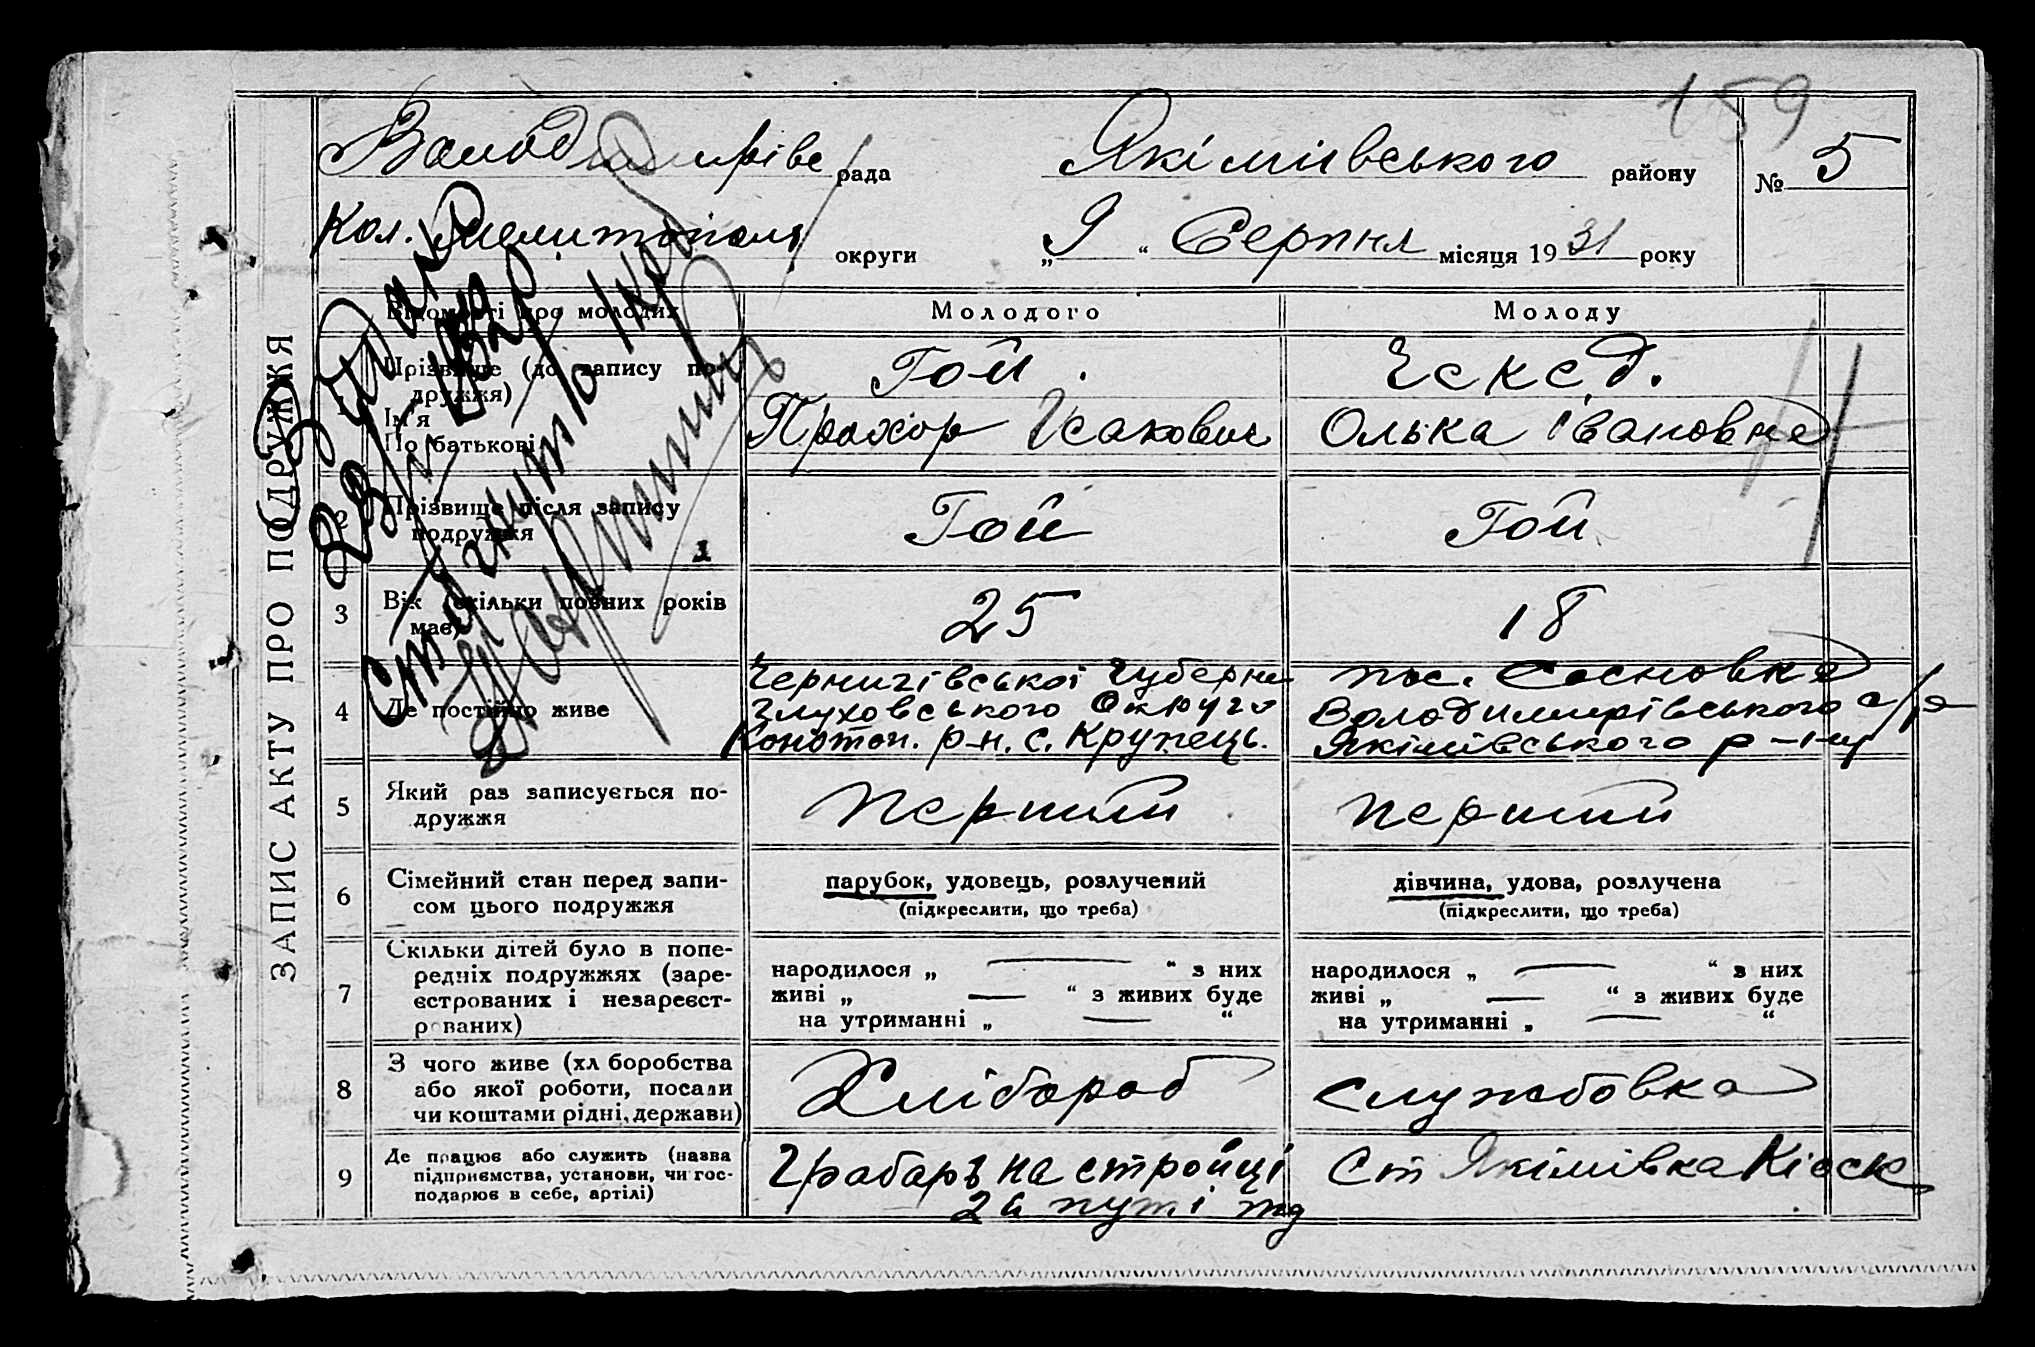 159
Володимирівс рада Якімивського району № 5
Кол. Мелитополь округи „9“ Серпня місяця 1931 року
ЗАПИС АКТУ ПРО ПОДРУЖЖЯ
Відомості про молодих Молодого Молоду
1 Прізвище (до запису подружжя) Гой. Ескед.
Ім'я
По батькові Прохор Исакович Олька Івановна
2 Прізвище після запису Гой Гой
подружжя
1
3 Вік (скільки повних років 25 18
має)
4 Де постійно живе Чернигівської Губерни пос. Сосновка
Глуховського Округа Володимирівського с/р
Конотоп. р-н. с. Крупець. Якімівського р-ну
5 Який раз записується по- перший перший
дружжя
6 Сімейний стан перед запи- парубок, удовець, розлучений дівчина, удова, розлучена
сом цього подружжя (підкреслити, що треба) (підкреслити, що треба)
7 Скільки дітей було в попе-
редніх подружжях (заре- народилося „ — “ з них народилося „ — “ з них
єстрованих і незареєст- живі „ — “ з живих буде живі „ — “ з живих буде
рованих) на утриманні „ — “ на утриманні „ — “
8 З чого живе (хл боробства
або якої роботи, посади Хлібороб службовка
чи коштами рідні, держави)
9 Де працює або служить (назва Грабарь на стройці Ст Якімівка Кіоск
підприємства, установи, чи гос- 2й путі жд
подарює в себе, артілі)